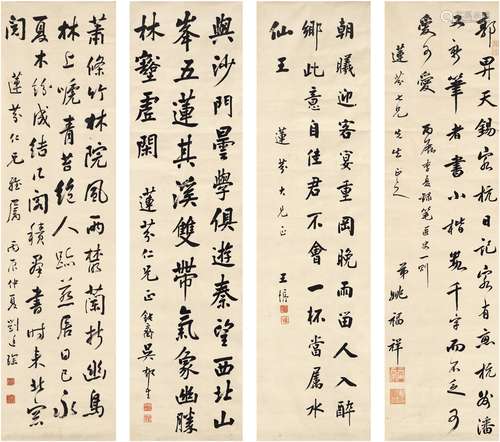 郭畀天錫客杭日記客有惠杭州潘
又新筆者書小楷數千字而不乏可
愛可愛 丙辰季夏錄筆匠文一則
蓮芬七兄先生正之 弟姚福祥
朝曦迎客宴重岡晚雨留人入醉
鄉此意自佳君不會一杯當屬水
仙王 蓮芬大兄正 王
與沙門曇學俱遊秦望西北山
峯五蓮其溪雙帶氣象幽勝
林壑虛閑 蓮芬仁兄正 鈍齋吳郁生
蕭條竹林院風雨叢蘭折幽鳥
林上啼青苔絕人跡燕居日已永
夏木紛成結几閣積羣書時來北窗
閱 蓮芬仁兄雅屬 丙辰仲夏劉廷琛